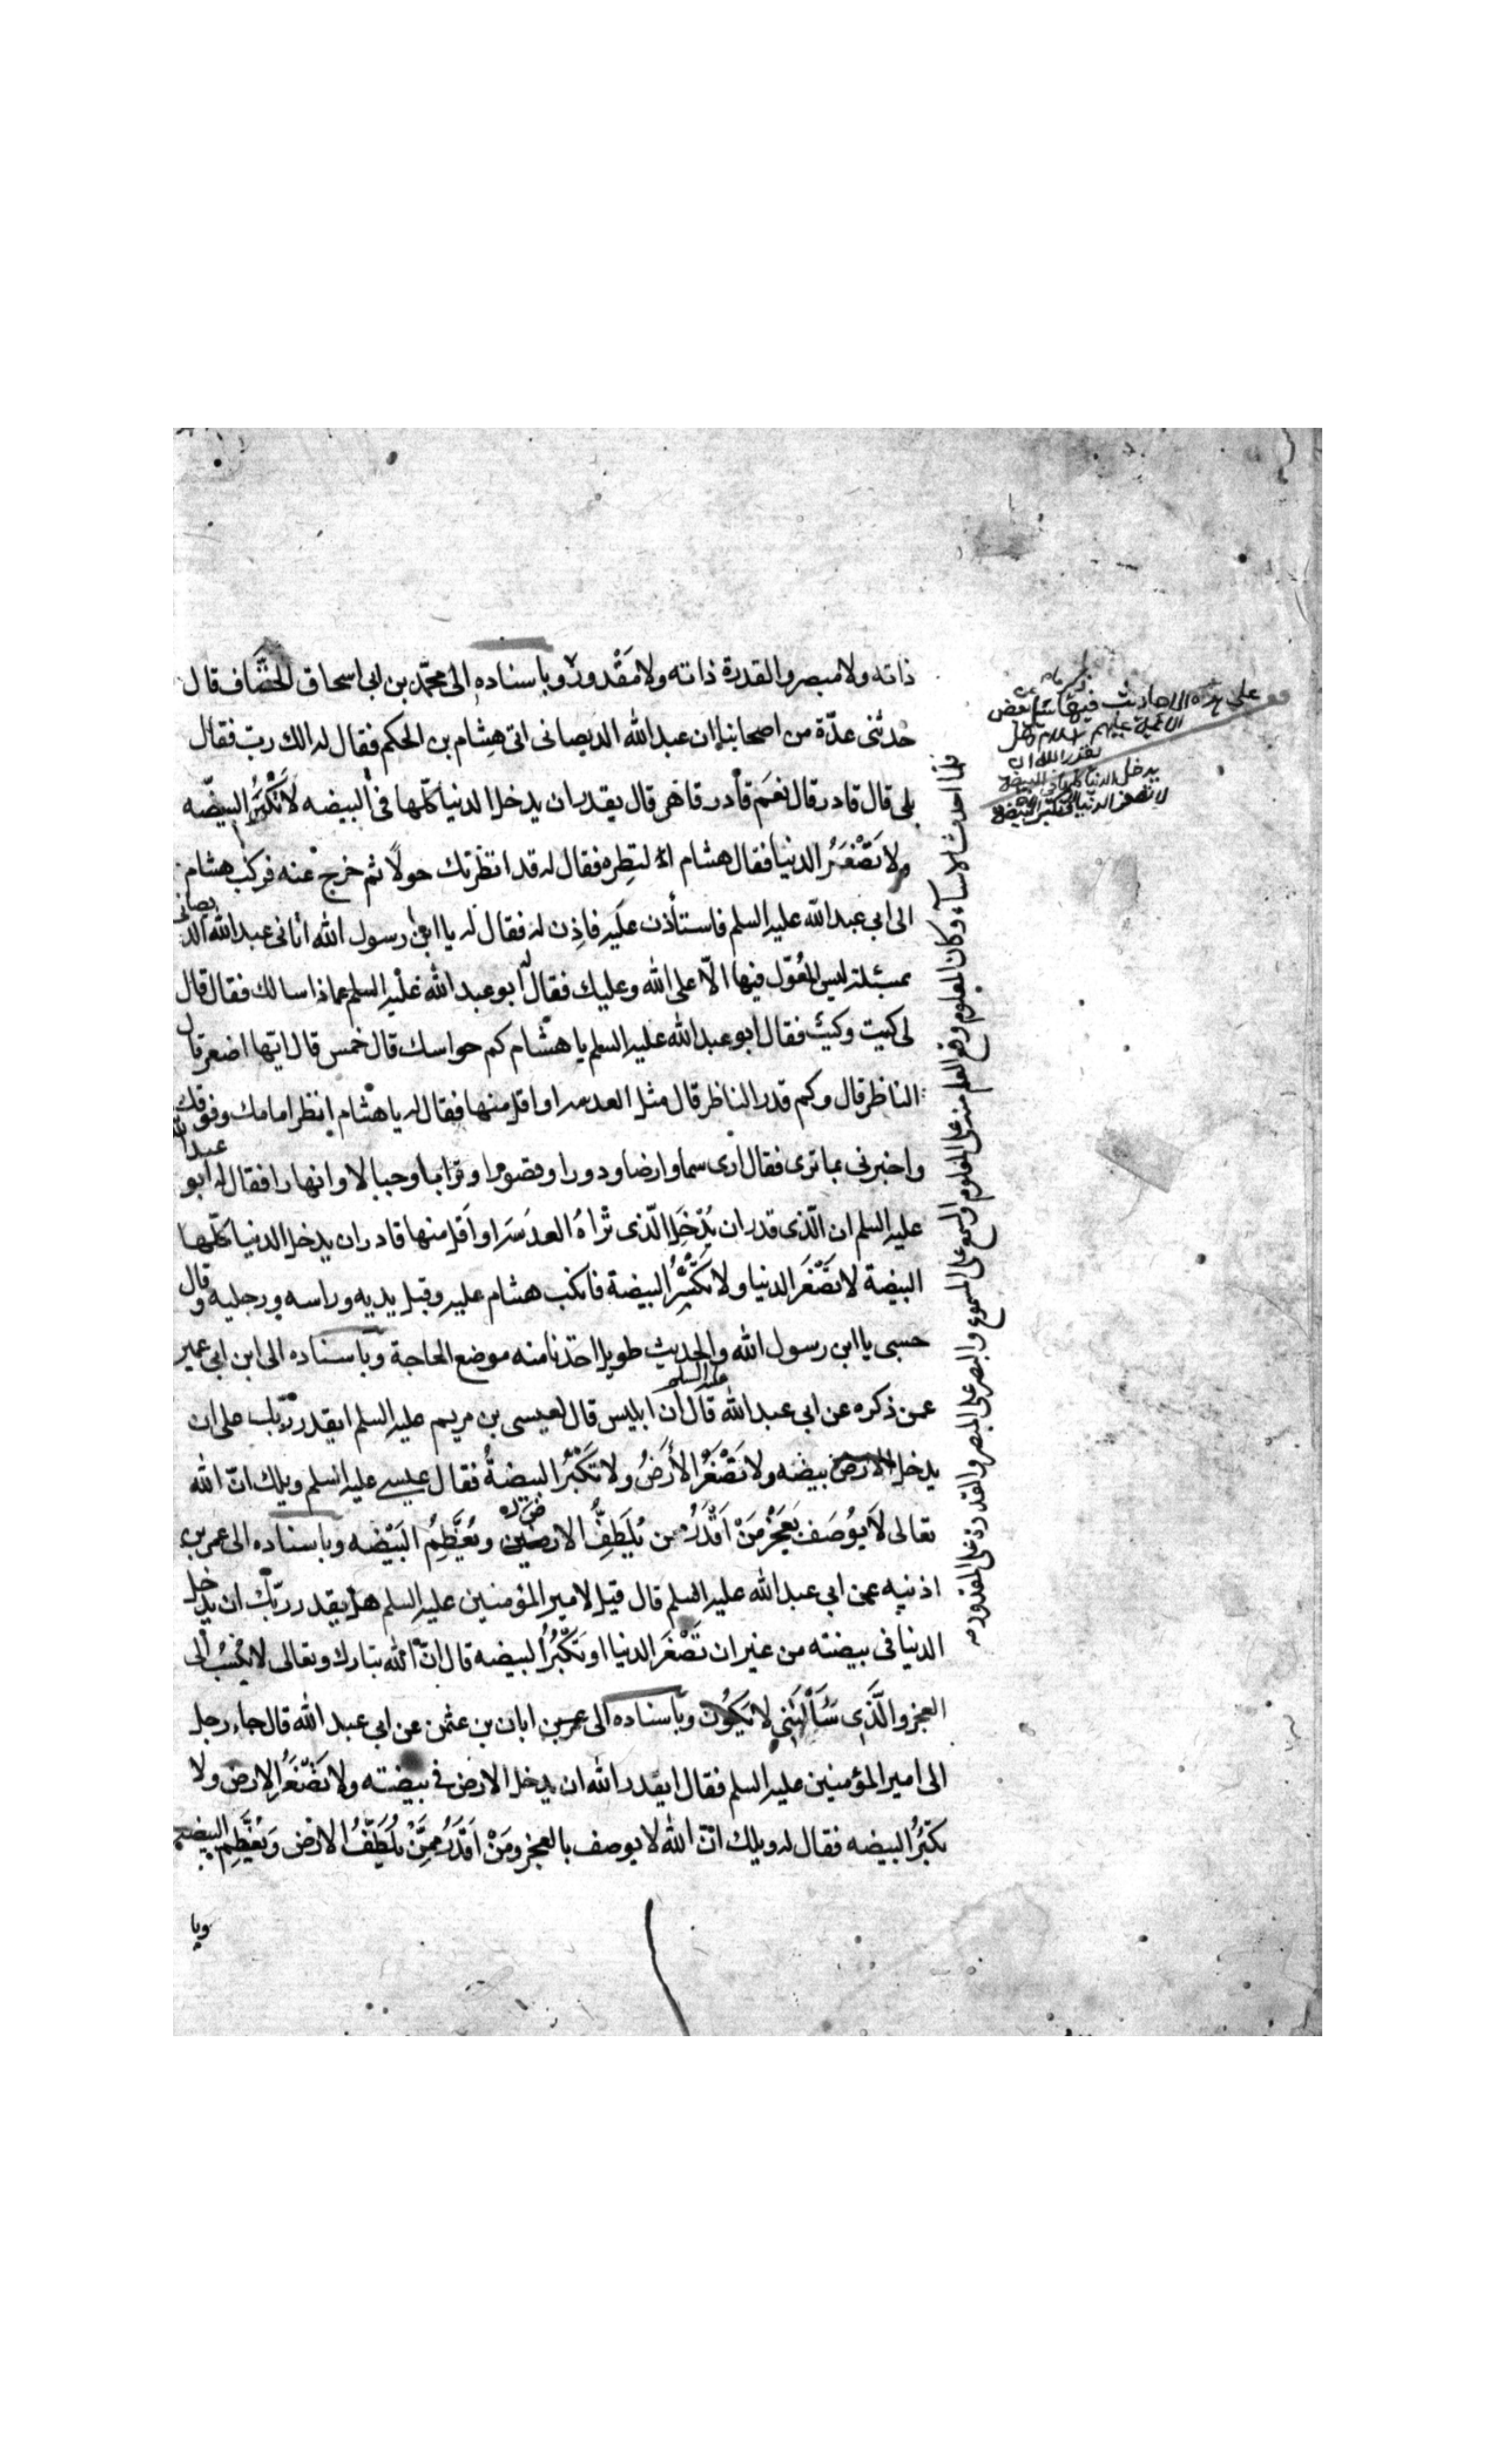 ذاته ولا مبصر والقدرة ذاته ولا مَقْدورَ وباسناده الى محمّد بن ابى اسحاق الخفّاف قال
حدثنى عدّة من اصحابنا ان عبد الله الديصانى اتى هِشام بن الحكم فقال له الك ربّ فقال
بلى قال قادر قال نعَم قادر قاهر قال يقدر ان يدخل الدنيا كلّها فى البيضه لا تَكْبُرُ البيضه
ولا تَصْغَرُ الدنيا فقال هشام النظره فقال له قد انظرتك حولًا ثم خرج عنه فركب هشام
الى ابى عبد الله عليه السلم فاستأذن عليه فاذِن له فقال له يا ابن رسول الله اتانى عبد الله الديصانى
بمسئلة ليس المُعَوّل فيها الّا على الله وعليك فقال له ابو عبد الله عليه السلم عماذا سالك فقال قال
لى كيت وكيت فقال ابو عبد الله عليه السلم يا هشام كم حواسك قال خمس قال ايّها اصغر قال
الناظر قال وكم قدر الناظر قال مثل العدسه او اقل منها فقال له يا هشام انظر امامك وفوقك
واخبرنى بما ترى فقال ارى سما وارضا ودورا وقصورا وترابا وجبالا وانهارا فقال له ابو عبد الله
عليه السلم ان الّذى قدر ان يُدْخِل الّذى تراهُ العدسَه او اقل منها قادر ان يدخل الدنيا كلّها
البيضة لا تَصْغَر الدنيا ولا تَكْبُرُ البيضة فانكب هشام عليه وقبل يديه وراسه ورجليه وقال
حسبى يا ابن رسول الله والحديث طويل اخذنا منه موضع الحاجة وباسناده الى ابن ابى عمير
عمن ذكره عن ابى عبد الله عليه السلم قال ان ابليس قال لعيسى بن مريم عليه السلم ايقدر ربّك على ان
يدخل الارض بيضه ولا تَصْغَرُ الأَرضُ ولا تَكْبُرُ البيضةُ فقال عيسى عليه السلم ويلك انّ الله
تعالى لَا يوُصَف بِعَجْزٍ مَنْ اَقْدَرُ ممن يُلَطِّفُ الارضين وَيُعَظِّمُ البَيْضه وباسناده الى عمر بن
اذنيه عن ابى عبد الله عليه السلم قال قيل لامير المؤمنين عليه السلم هل يقدر ربّك ان يدخل
الدنيا فى بيضته من غير ان تَصْغَر الدنيا او تَكْبُرُ البيضه قال انّ الله تبارك وتعالى لا يُنْسَبُ الى
العجز والَّذى سَئَأْلتَنى لا يَكُون وباسناده الى ابان بن عثمن عن ابى عبد الله قال جاء رجل
الى امير المؤمنين عليه السلم فقال ايقدر الله ان يدخل الارض فى بيضته ولا تَصْغَرُ الارض ولا
تكبُرُ البيضه فقال له ويلك انّ الله لا يوصف بالعجز ومَنْ اَقْدَرُ ممِّنْ يُلَطِّفُ الارض وَيُعَظِّم البيضه
وبا
فلما احدث الاشياء وكان المعلوم وقع العلم منه على المعلوم والسمع على المسموع والبصر على المبصر والقدرة على المقدور
على هذه الاحاديث فيها سئل بعض
الائمة عليهم السلام هل
يقدر الله ان
يدخل الدنيا كلها فى البيضة
لا تصغر الدنيا ولا تكبر البيضة